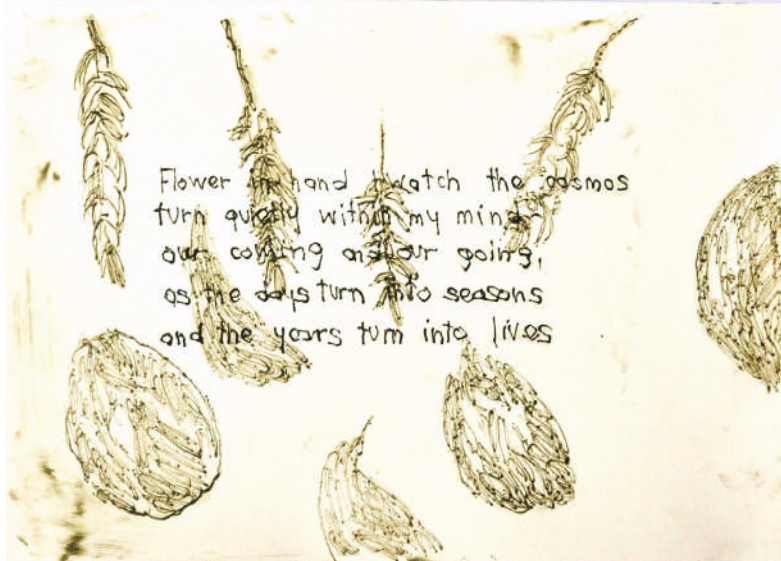 Flower in hand I watch the cosmos
turn quietly within my mind-
our coming and our going,
as the days turn into seasons
and the years turn into lives